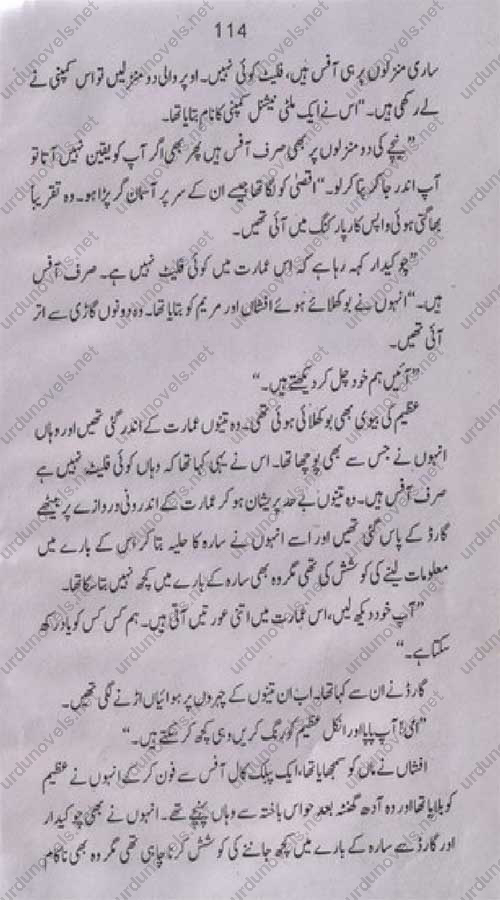 114
ساری منزلوں پر ہی آفس ہیں، فلیٹ کوئی نہیں۔ اوپر والی دو منزلیں تو اس کمپنی نے
لے رکھی ہیں۔“ اس نے ایک ملٹی نیشنل کمپنی کا نام بتایا تھا۔
”نیچے کی دو منزلوں پر بھی صرف آفس ہیں پھر بھی اگر آپ کو یقین نہیں آتا تو
آپ اندر جا کر پتا کر لو۔“ اقصیٰ کو لگا تھا جیسے ان کے سر پر آسمان گر پڑا ہو۔ وہ تقریباً
بھاگتی ہوئی واپس کار پارکنگ میں آئی تھیں۔
”چوکیدار کہہ رہا ہے کہ اس عمارت میں کوئی فلیٹ نہیں ہے۔ صرف آفس
ہیں۔“ انہوں نے بوکھلائے ہوئے افشاں اور مریم کو بتایا تھا۔ وہ دونوں گاڑی سے اتر
آئی تھیں۔
”آئیں ہم خود چل کر دیکھتے ہیں۔“
عظیم کی بیوی بھی بوکھلائی ہوئی تھی۔ وہ تینوں عمارت کے اندر گئی تھیں اور وہاں
انہوں نے جس سے بھی پوچھا تھا۔ اس نے یہی کہا تھا کہ وہاں کوئی فلیٹ نہیں ہے
صرف آفس ہیں۔ وہ تینوں بے حد پریشان ہو کر عمارت کے اندرونی دروازے پر بیٹھے
گارڈ کے پاس گئی تھیں اور اسے انہوں نے سارہ کا حلیہ بتا کر اس کے بارے میں
معلومات لینے کی کوشش کی تھی مگر وہ بھی سارہ کے بارے میں کچھ نہیں بتا سکا تھا۔
”آپ خود دیکھ لیں، اس عمارت میں اتنی عورتیں آتی ہیں۔ ہم کس کس کو یاد رکھ
سکتا ہے۔“
گارڈ نے ان سے کہا تھا۔ اب ان تینوں کے چہروں پر ہوائیاں اڑنے لگی تھیں۔
”امی! آپ پاپا اور انکل عظیم کو رنگ کریں وہی کچھ کر سکتے ہیں۔“
افشاں نے ماں کو سمجھایا تھا، ایک پبلک کال آفس سے فون کر کے انہوں نے عظیم
کو بلایا تھا اور وہ آدھ گھنٹہ بعد حواس باختہ سے وہاں پہنچے تھے۔ انہوں نے بھی چوکیدار
اور گارڈ سے سارہ کے بارے میں کچھ جاننے کی کوشش کرنا چاہی تھی مگر وہ بھی ناکام
urdunovels.net